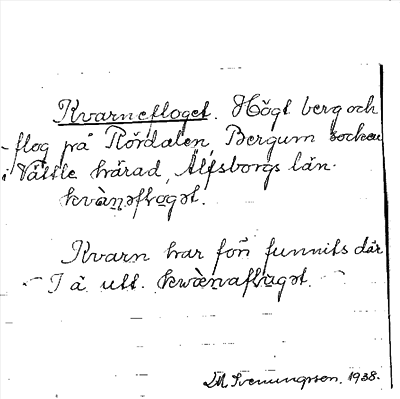 Kvarnefloget. Högt berg och
flog på Rördalen, Bergum socken
i Vättle härad, Älfsborgs län.
kvàṇəflogət.
Kvarn har förr funnits där
I à utt.
Svenungsson. 1938.